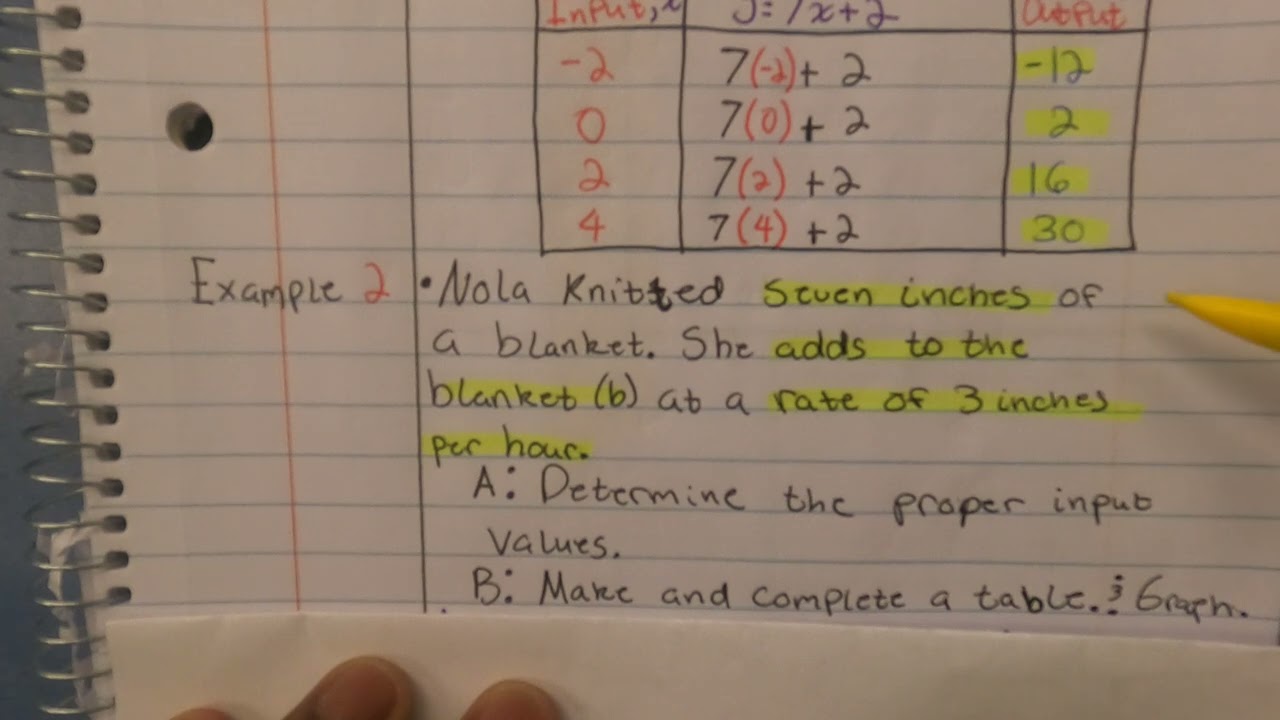 Input, x y=7x+2 Output
-2 7(-2)+ 2 -12
0 7(0)+ 2 2
2 7(2) +2 16
4 7(4) +2 30
Example 2 • Nola Knitted seven inches of
a blanket. She adds to the
blanket (b) at a rate of 3 inches
per hour.
A: Determine the proper input
values.
B: Make and complete a table. & Graph.